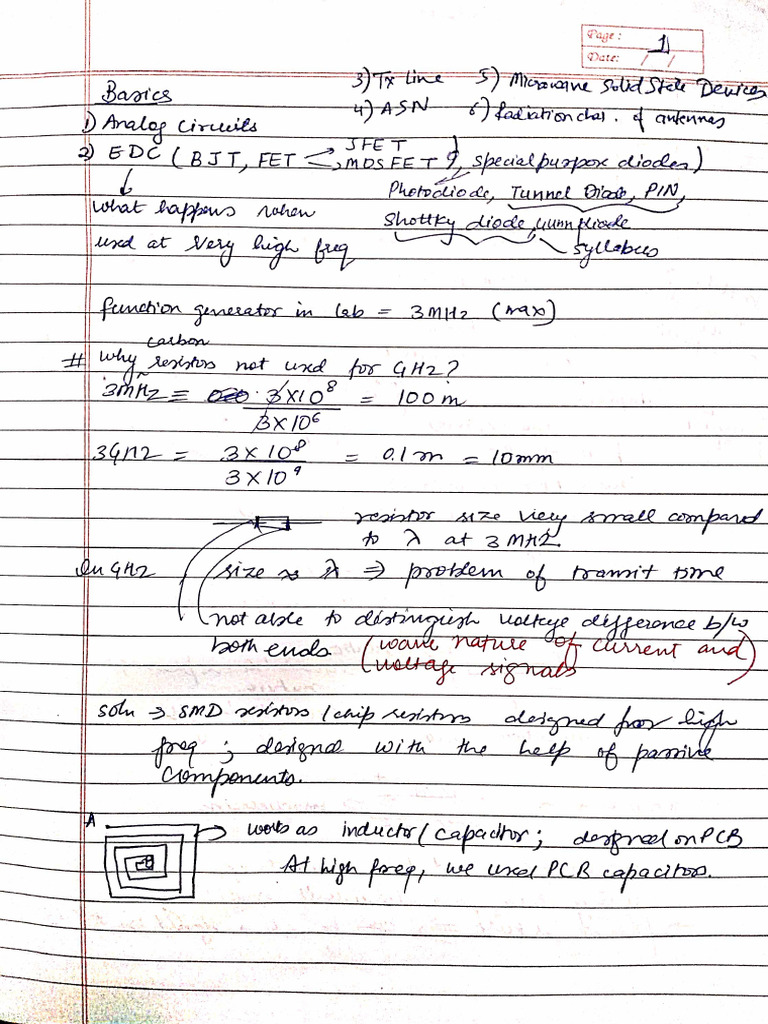 Page: 1
Date: / /
Basics
3) Tx Line 5) Microwave Solid State Devices
4) ASN 6) Radiation char. of antennas
1) Analog Circuits
2) EDC (BJT, FET → JFET → MOSFET, special purpose diodes)
Photodiode, Tunnel Diode, PIN,
What happens when
Shottky diode, Gunn diode
used at very high freq
syllabus
function generator in lab = 3MHz (max)
carbon
# Why resistors not used for GHz?
3MHz ≡ 3×10⁸ / 3×10⁶ = 100 m
3GHz = 3×10⁸ / 3×10⁹ = 0.1m = 10mm
resistor size very small compared
to λ at 3MHz.
In GHz size ≈ λ ⇒ problem of transit time
not able to distinguish voltage difference b/w
both ends. (wave nature of current and
voltage signals)
soln → SMD resistors / chip resistors designed for high
freq ; designed with the help of passive
components.
A → works as inductor / capacitor ; designed on PCB
B
At high freq, we used PCB capacitors.